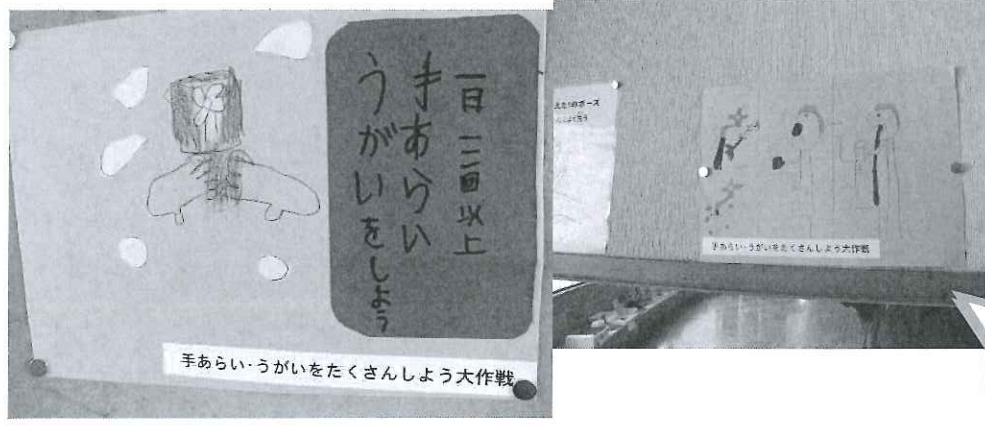 一日三回以上
手あらい
うがいをしよう
手あらい・うがいをたくさんしよう大作戦
手あらい・うがいをたくさんしよう大作戦